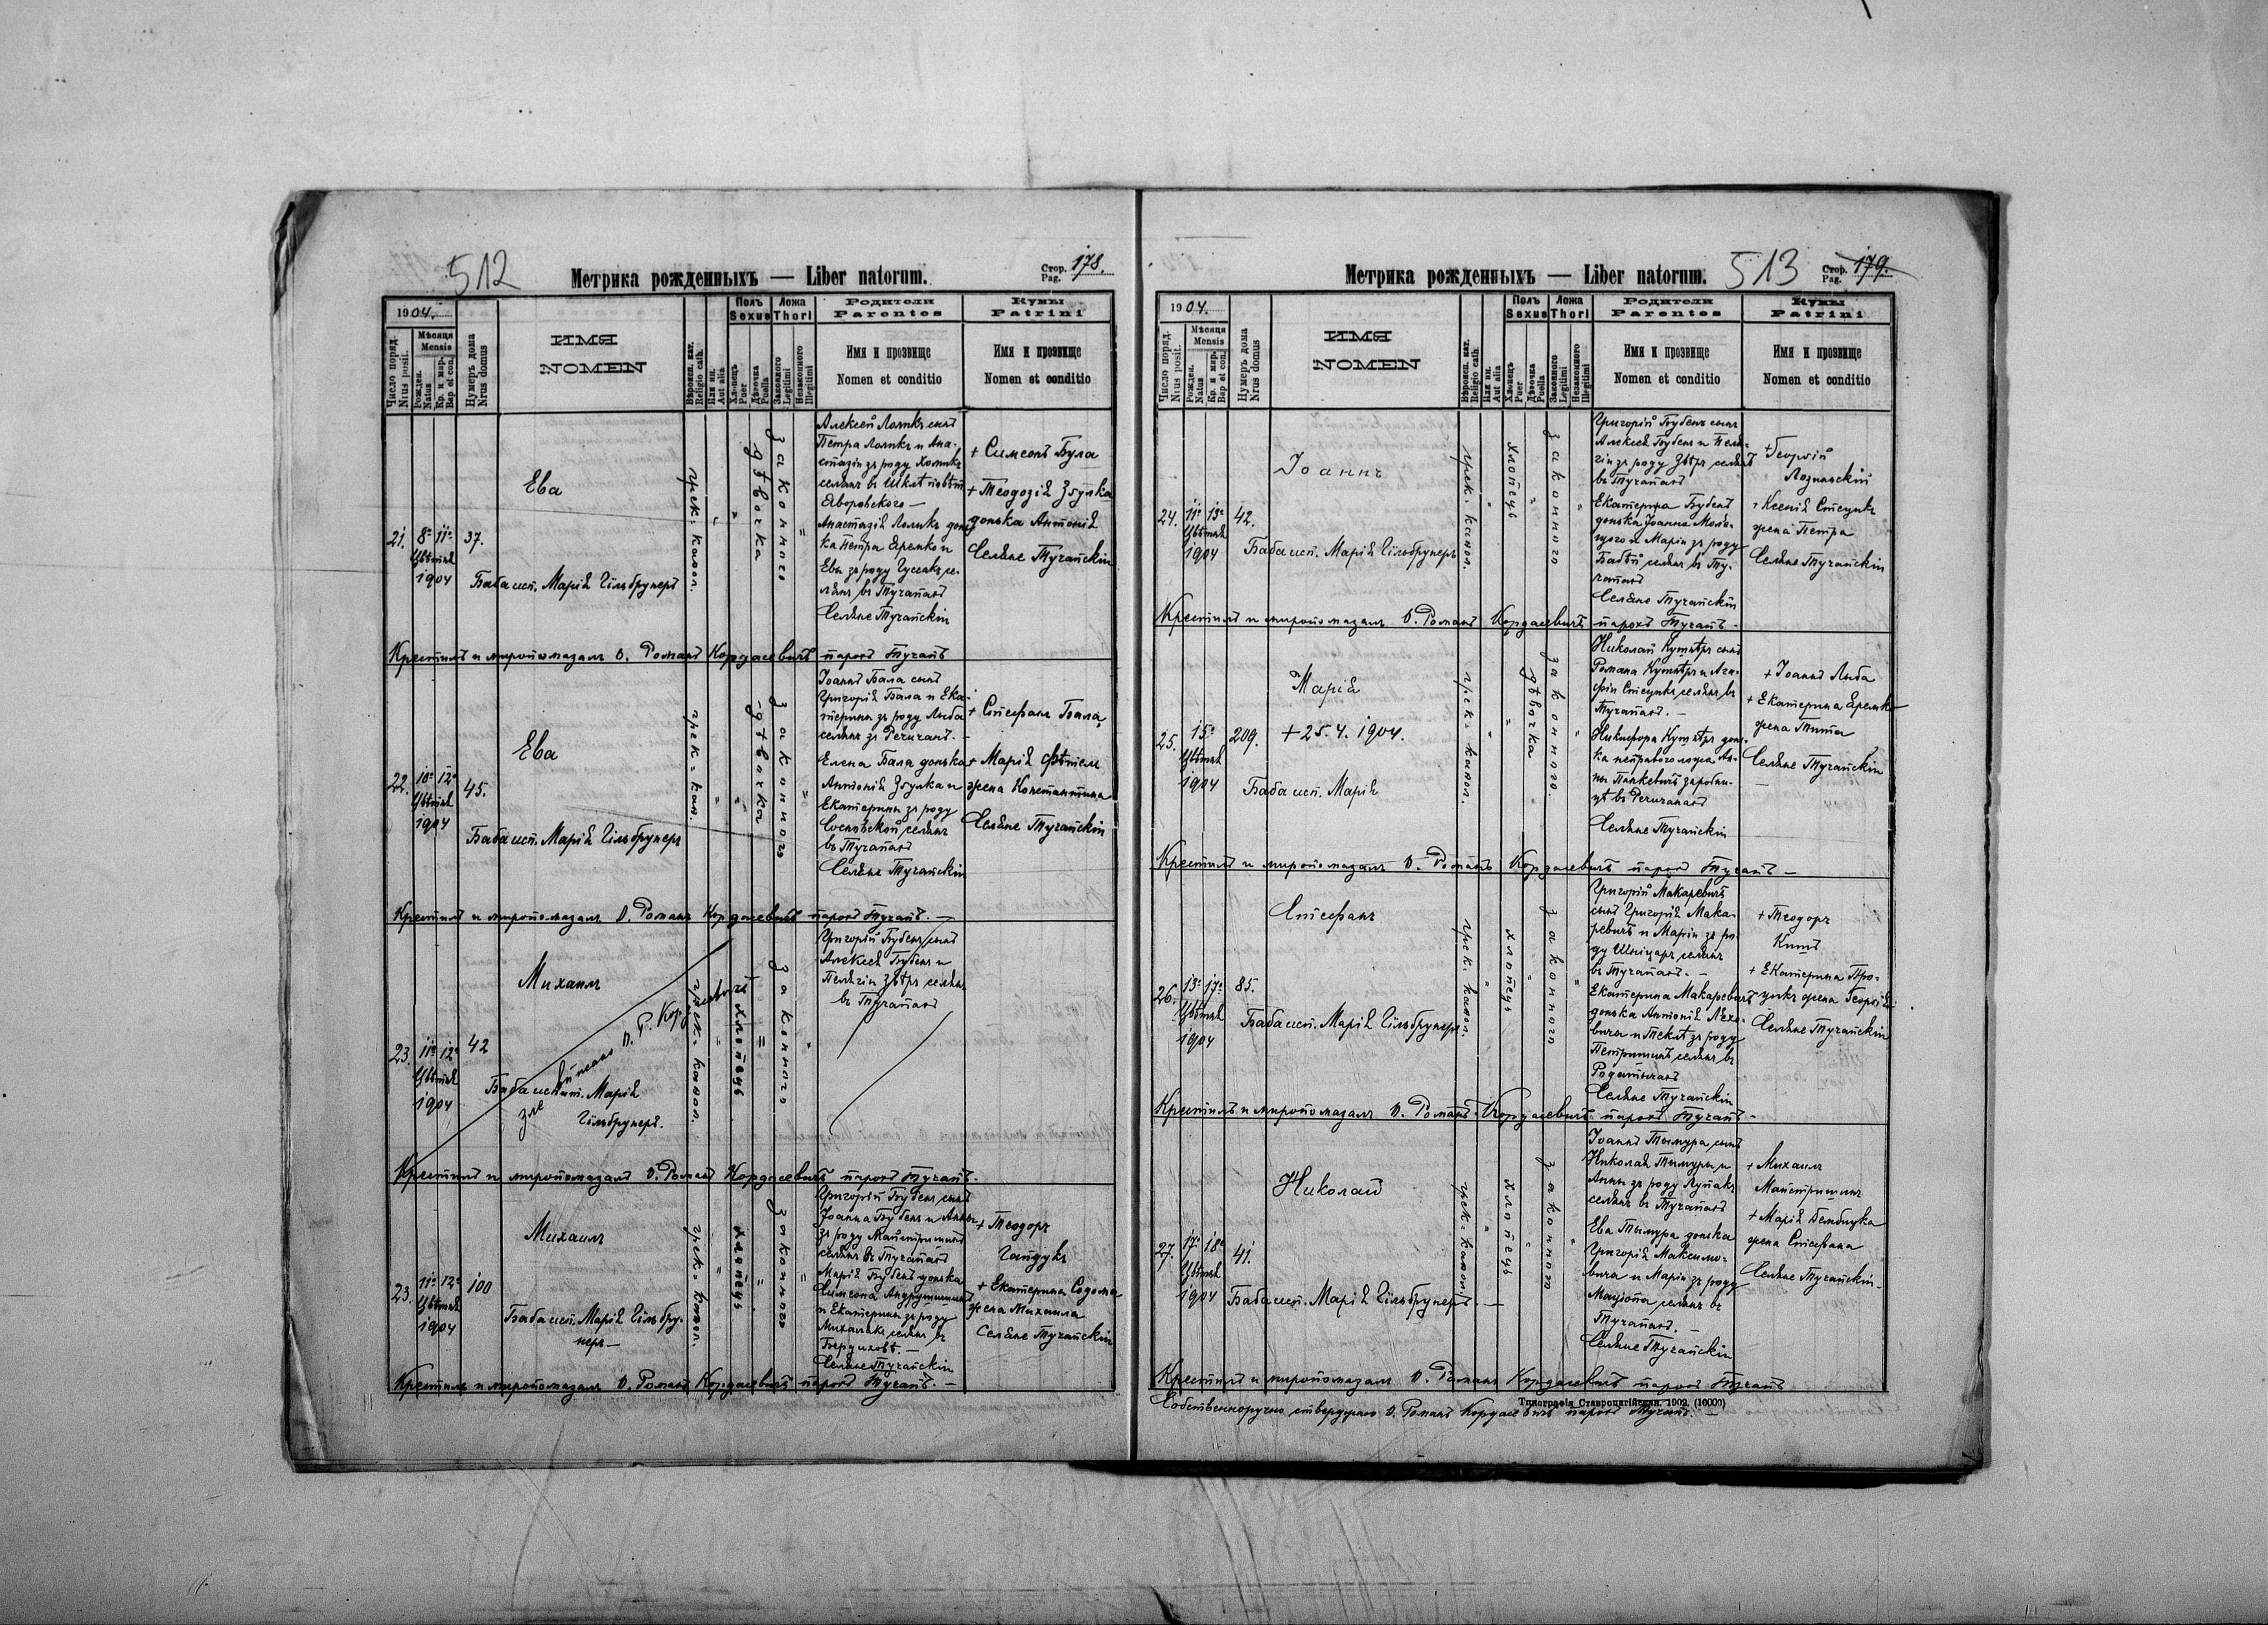 512
Метрика рожденныхъ — Liber natorum.
Стор. Pag. 178.
1904.
Число поряд. Nrus posit.
Мѣсяця Mensis
Рожден. Natus
Кр. и мир. Bap et con.
Нумеръ дома Nrus domus
ИМЯ
NOMEN
Вѣроисп. кат. Religio cath.
Или ин. Aut alia
Полъ Sexus
Хлопецъ Puer
Дѣвочка Puella
Ложа Thori
Законного Legitimi
Незаконного Illegitimi
Родители
Parentes
Имя и прозвище
Nomen et conditio
Кумы
Patrini
Имя и прозвище
Nomen et conditio
21.
8. 11.
Цвѣтня
1904
37.
Ева
Баба исп. Марія Гільбрунеръ
грек. катол.
дѣвочка
законного
Петра и Ана-
стазіи зъ роду
Яворовского —
Анастазія донь-
ка Петра Яремко и
Евы зъ роду Гусакъ се-
лянъ въ Тучапахъ
Селяне Тучапскіи
+ Симеонъ Була
+ Теодозія Збулка
донька Антонія
Селяне Тучапскіи
Крестилъ и миропомазалъ О. Романъ Кордасевичъ парохъ Тучапъ
22.
10. 12.
Цвѣтня
1904
45.
Ева
Баба исп. Марія Гільбрунеръ
грек. кат.
дѣвочка
законного
Іоаннъ Бала сынъ
Григорія Бала и Ека-
терины зъ роду Лыба
селянъ зъ Речичанъ. —
Елена Бала донька
Антонія Збулка и
Екатерины зъ роду
Сосновской селянъ
въ Тучапахъ
Селяне Тучапскіи
+ Стефанъ Бала
+ Марія Фѣтель
жена Константина
Селяне Тучапскіи
Крестилъ и миропомазалъ О. Романъ Кордасевичъ парохъ Тучапъ. —
23.
11. 12.
Цвѣтня
1904
42
Михаилъ
Баба испыт. Марія
Гільбрунеръ.
зле вписано О. Р. Кордасевичъ
грек. катол.
хлопецъ
законного
Григорій Бубенъ сынъ
Алексія Бубенъ и
Пелагіи Звѣръ селянъ
въ Тучапахъ
Крестилъ и миропомазалъ О. Романъ Кордасевичъ парохъ Тучапъ.
23.
11. 12.
Цвѣтня
1904
100
Михаилъ
Баба исп. Марія Гільбру-
неръ —
грек. катол.
хлопецъ
законного
Григорій Бубенъ сынъ
Іоанна Бубенъ и Анны
зъ роду Майстришинъ
селянъ въ Тучапахъ
Марія Бубенъ донька
Симеона Андрушишинъ
и Екатерины зъ роду
Михалякъ селянъ въ
Селяне Тучапскіи
+ Теодоръ
Гайдукъ
+ Екатерина Содома
жена Михаила
Селяне Тучапскіи
Крестилъ и миропомазалъ О. Романъ Кордасевичъ парохъ Тучапъ. —
Метрика рожденныхъ — Liber natorum.
513
Стор. Pag. 179.
1904.
Число поряд. Nrus posit.
Мѣсяця Mensis
Рожден. Natus
Кр. и мир. Bap et con.
Нумеръ дома Nrus domus
ИМЯ
NOMEN
Вѣроисп. кат. Religio cath.
Или ин. Aut alia
Полъ Sexus
Хлопецъ Puer
Дѣвочка Puella
Ложа Thori
Законного Legitimi
Незаконного Illegitimi
Родители
Parentes
Имя и прозвище
Nomen et conditio
Кумы
Patrini
Имя и прозвище
Nomen et conditio
24.
11. 13.
Цвѣтня
1904
42.
Іоаннъ
Баба исп. Марія Гільбрунеръ
грек. катол.
хлопецъ
законного
Григорій Бубенъ сынъ
Алексія Бубенъ и Пела-
гіи зъ роду Звѣръ селянъ
въ Тучапахъ
Екатерина Бубенъ
донька Іоанна
и Маріи зъ роду
Бабѣй селянъ въ Ту-
чапахъ
Селяне Тучапскіи
+ Георгій
Лозиньскій
+ Ксенія Стецукъ
жена Петра
Селяне Тучапскіи
Крестилъ и миропомазалъ О. Романъ Кордасевичъ парохъ Тучапъ —
25.
15.
Цвѣтня
1904
209.
Марія
+ 25. 4. 1904.
Баба исп. Марія
грек. катол.
дѣвочка
законного.
Николай Кушнѣръ сынъ
Романа Кушнѣръ и Ага-
фіи Стецукъ селянъ въ
Тучапахъ. —
Никифора Кушнѣръ донь-
ка неправого ложа Ан-
ны Панкевичъ заробни-
цѣ въ Речичанахъ
Селяне Тучапскіи
+ Іоаннъ Лыба
+ Екатерина Яремко
жена Тита
Селяне Тучапскіи
Крестилъ и миропомазалъ О. Романъ Кордасевичъ парохъ Тучапъ —
26.
13. 17.
Цвѣтня
1904
85.
Стефанъ
Баба исп. Марія Гільбрунеръ
грек. катол.
хлопецъ
законного
Григорій Макаревичъ
сынъ Григорія Мака-
ревичъ и Маріи зъ ро-
ду Шніцаръ селянъ
въ Тучапахъ. —
Екатерина Макаревичъ
донька Антонія Ляхо-
вича и Теклѣ зъ роду
Петришинъ селянъ въ
Родатычахъ
Селяне Тучапскіи
+ Теодоръ
Китъ
+ Екатерина Про-
цукъ жена Георгія
Селяне Тучапскіи
Крестилъ и миропомазалъ О. Романъ Кордасевичъ парохъ Тучапъ —
27.
17. 18.
Цвѣтня
1904
41.
Николай
Баба исп. Марія Гільбрунеръ. —
грек. катол.
хлопецъ
законного
Іоаннъ Тымура сынъ
Николая Тымуры и
Анны зъ роду Лупакъ
селянъ въ Тучапахъ
Ева Тымура донька
Григорія Максимо-
вича и Маріи зъ роду
Мацюпа селянъ въ
Тучапахъ. —
Селяне Тучапскіи
+ Михаилъ
Майстришинъ
+ Марія Бембнука
жена Стефана
Селяне Тучапскіи —
Крестилъ и миропомазалъ О. Романъ Кордасевичъ парохъ Тучапъ
Типографія Ставропигійская. 1902. (10000)
Собственноручно стверджаю О. Романъ Кордасевичъ парохъ Тучапъ. —